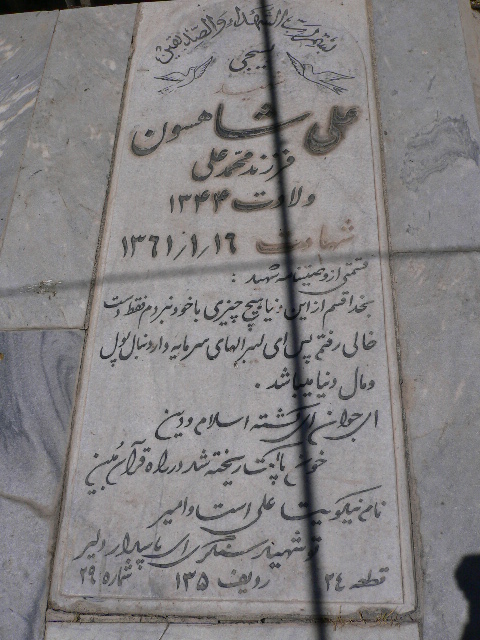 بسم رب الشهداء والصدیقین
بسیجی
شهید
علی شاهسون
فرزند محمد علی
ولادت ۱۳۴۴
شهادت ۱۳۶۱/۱/۱۶
قسمتی از وصیتنامه شهید :
بخدا قسم از این دنیا هیچ چیزی با خود نبردم فقط دست
خالی رفتم پس ای لیبرالهای سرمایه دار دنبال پول
و مال دنیا میباشد .
ای جوان ای کشته اسلام و دین
خون پاکت ریخته شد در راه قرآن مبین
نام نیکویت علی است و امیر
تو شهید سنگری ای پایدار و دلیر
قطعه ۲۴ ردیف ۱۳۵ شماره ۲۹